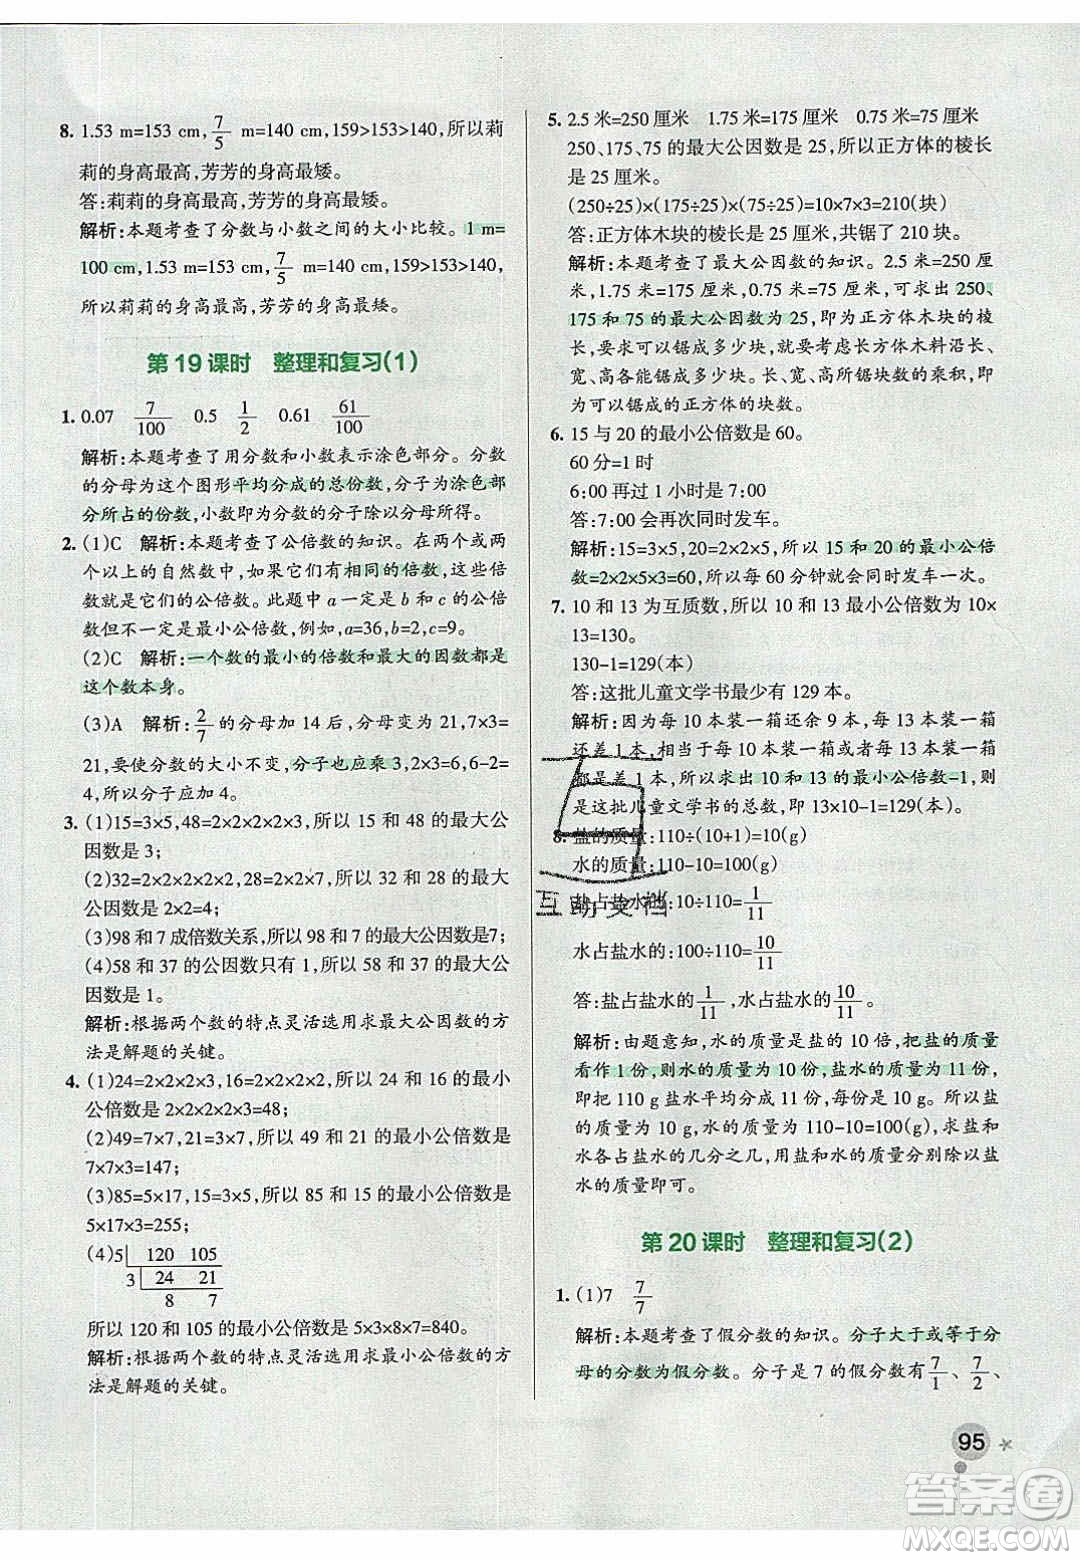 8. 1.53 m=153 cm, 7/5 m=140 cm, 159>153>140, 所以莉
莉的身高最高,芳芳的身高最矮。
答:莉莉的身高最高,芳芳的身高最矮。
解析:本题考查了分数与小数之间的大小比较。1 m=
100 cm, 1.53 m=153 cm, 7/5 m=140 cm, 159>153>140,
所以莉莉的身高最高,芳芳的身高最矮。
第 19 课时 整理和复习(1)
1. 0.07 7/100 0.5 1/2 0.61 61/100
解析:本题考查了用分数和小数表示涂色部分。分数
的分母为这个图形平均分成的总份数,分子为涂色部
分所占的份数,小数即为分数的分子除以分母所得。
2. (1)C 解析:本题考查了公倍数的知识。在两个或两
个以上的自然数中,如果它们有相同的倍数,这些倍
数就是它们的公倍数。此题中 a 一定是 b 和 c 的公倍
数但不一定是最小公倍数,例如,a=36,b=2,c=9。
(2)C 解析:一个数的最小的倍数和最大的因数都是
这个数本身。
(3)A 解析:2/7 的分母加 14 后,分母变为 21,7×3=
21,要使分数的大小不变,分子也应乘 3,2×3=6,6-2=
4,所以分子应加 4。
3. (1)15=3×5,48=2×2×2×2×3,所以 15 和 48 的最大公
因数是 3;
(2)32=2×2×2×2×2,28=2×2×7,所以 32 和 28 的最大
公因数是 2×2=4;
(3)98 和 7 成倍数关系,所以 98 和 7 的最大公因数是7;
(4)58 和 37 的公因数只有 1,所以 58 和 37 的最大公
因数是 1。
解析:根据两个数的特点灵活选用求最大公因数的方
法是解题的关键。
4. (1)24=2×2×2×3,16=2×2×2×2,所以 24 和 16 的最小
公倍数是 2×2×2×2×3=48;
(2)49=7×7,21=7×3,所以 49 和 21 的最小公倍数是
7×7×3=147;
(3)85=5×17,15=3×5,所以 85 和 15 的最小公倍数是
5×17×3=255;
(4)5 120 105
3 24 21
8 7
所以 120 和 105 的最小公倍数是 5×3×8×7=840。
解析:根据两个数的特点灵活选用求最小公倍数的方
法是解题的关键。
5. 2.5 米=250 厘米 1.75 米=175 厘米 0.75 米=75 厘米
250、175、75 的最大公因数是 25,所以正方体的棱长
是 25 厘米。
(250÷25)×(175÷25)×(75÷25)=10×7×3=210(块)
答:正方体木块的棱长是 25 厘米,共锯了 210 块。
解析:本题考查了最大公因数的知识。2.5 米=250 厘
米,1.75 米=175 厘米,0.75 米=75 厘米,可求出 250、
175 和 75 的最大公因数为 25,即为正方体木块的棱
长,再求出可以锯成多少块,即要考虑长方体木料沿长、
宽、高各能锯成多少块。长、宽、高所锯块数的乘积,即
为可以锯成的正方体的块数。
6. 15 与 20 的最小公倍数是 60。
60 分=1 时
6:00 再过 1 小时是 7:00
答:7:00 会再次同时发车。
解析:15=3×5,20=2×2×5,所以 15 和 20 的最小公倍
数=2×2×5×3=60,所以每 60 分钟就会同时发车一次。
7. 10 和 13 为互质数,所以 10 和 13 最小公倍数为 10×
13=130。
130-1=129(本)
答:这批儿童文学书最少有 129 本。
解析:因为每 10 本装一箱还余 9 本,每 13 本装一箱
还差 1 本,相当于每 10 本装一箱或者每 13 本装一箱
都是差 1 本,所以求出 10 和 13 的最小公倍数-1,则
是这批儿童文学书的总数,即 13×10-1=129(本)。
8. 盐的质量:110÷(10+1)=10(g)
水的质量:110-10=100(g)
盐占盐水的:10÷110=1/11
水占盐水的:100÷110=10/11
答:盐占盐水的 1/11,水占盐水的 10/11。
解析:由题意知,水的质量是盐的 10 倍,把盐的质量
看作 1 份,则水的质量为 10 份,盐水的质量为 11 份,
即把 110 g 盐水平均分成 11 份,每份是 10 g。所以盐
的质量为 10 g,水的质量为 110-10=100(g)。求盐和
水各占盐水的几分之几,把盐和水的质量分别除以盐
水的质量即可。
第 20 课时 整理和复习(2)
1. (1)7 7/7
解析:本题考查了假分数的知识。分子大于或等于分
母的分数为假分数。分子是 7 的假分数有 7/1、7/2、
95
互动文档
答案圈
MXQE.COM